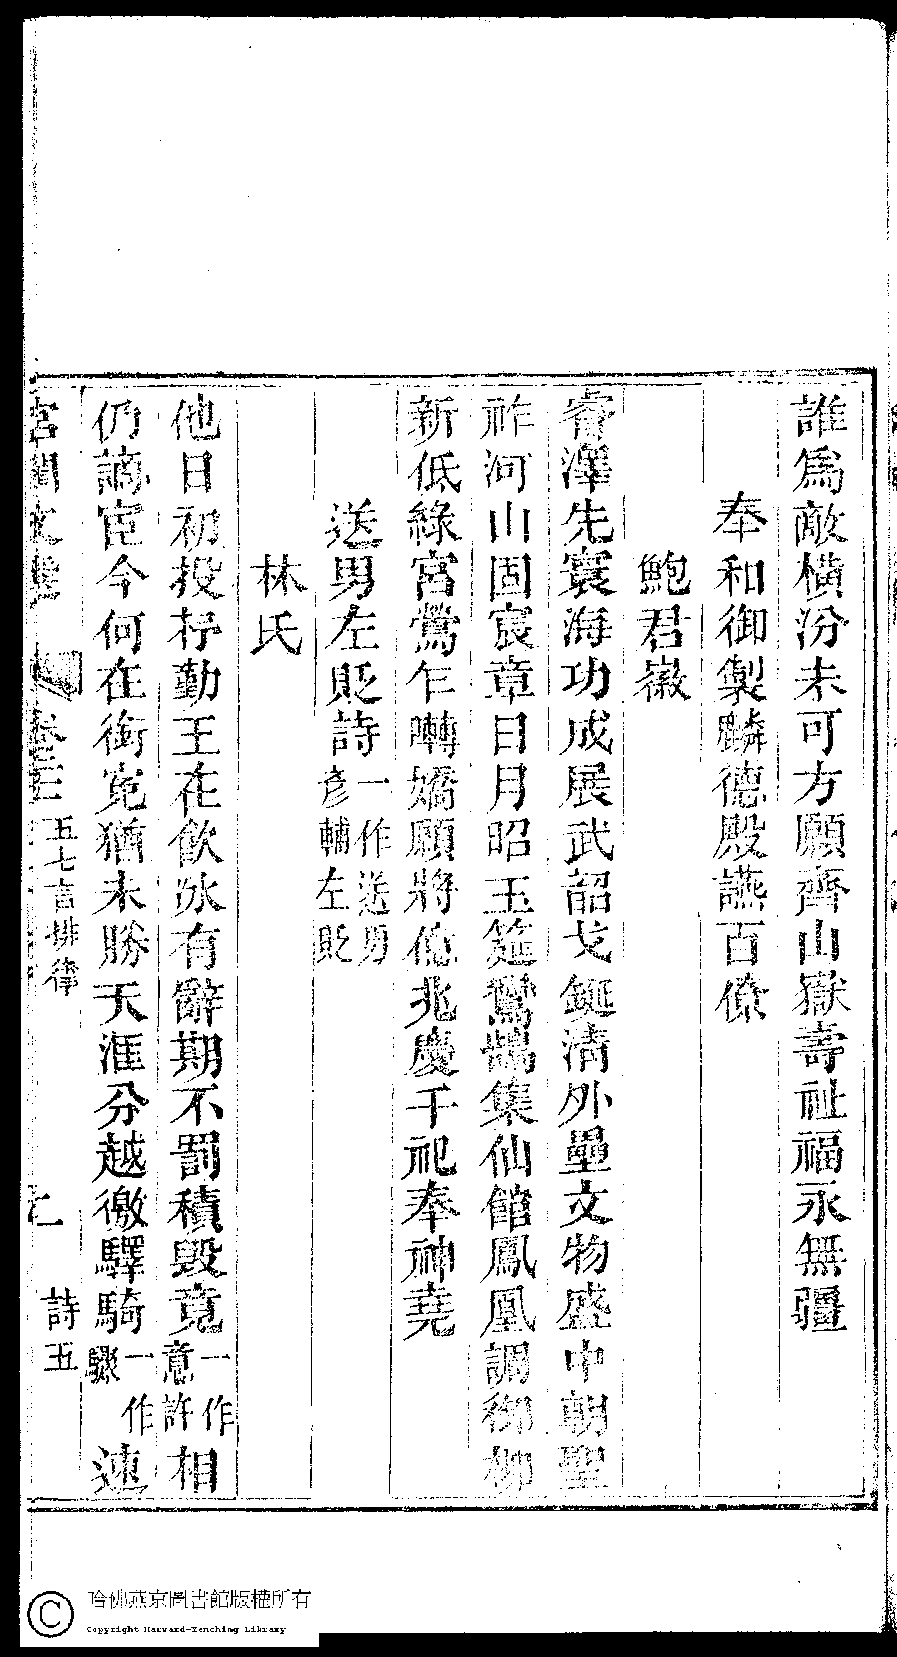 誰爲敵橫汾未可方願齊山嶽壽祉福永無疆
奉和御製麟德殿讌百僚
鮑君徽
睿澤先寰海功成展武韶戈鋋清外壘文物盛中朝聖
祚河山固宸章日月昭玉筵鸞鵲集仙館鳳凰調御柳
新低綠宮鶯乍囀嬌願將億兆慶千祀奉神堯
送男左貶詩一作送男彥輔左貶
林氏
他日初投杼勤王在飲冰有辭期不罰積毀竟一作意許相
仍謫宦今何在銜冤猶未勝天涯分越徼驛騎一作驟速
宮閨文 卷三 五七言排律 七 詩五
哈佛燕京圖書館版權所有
Copyright Harvard-Yenching Library